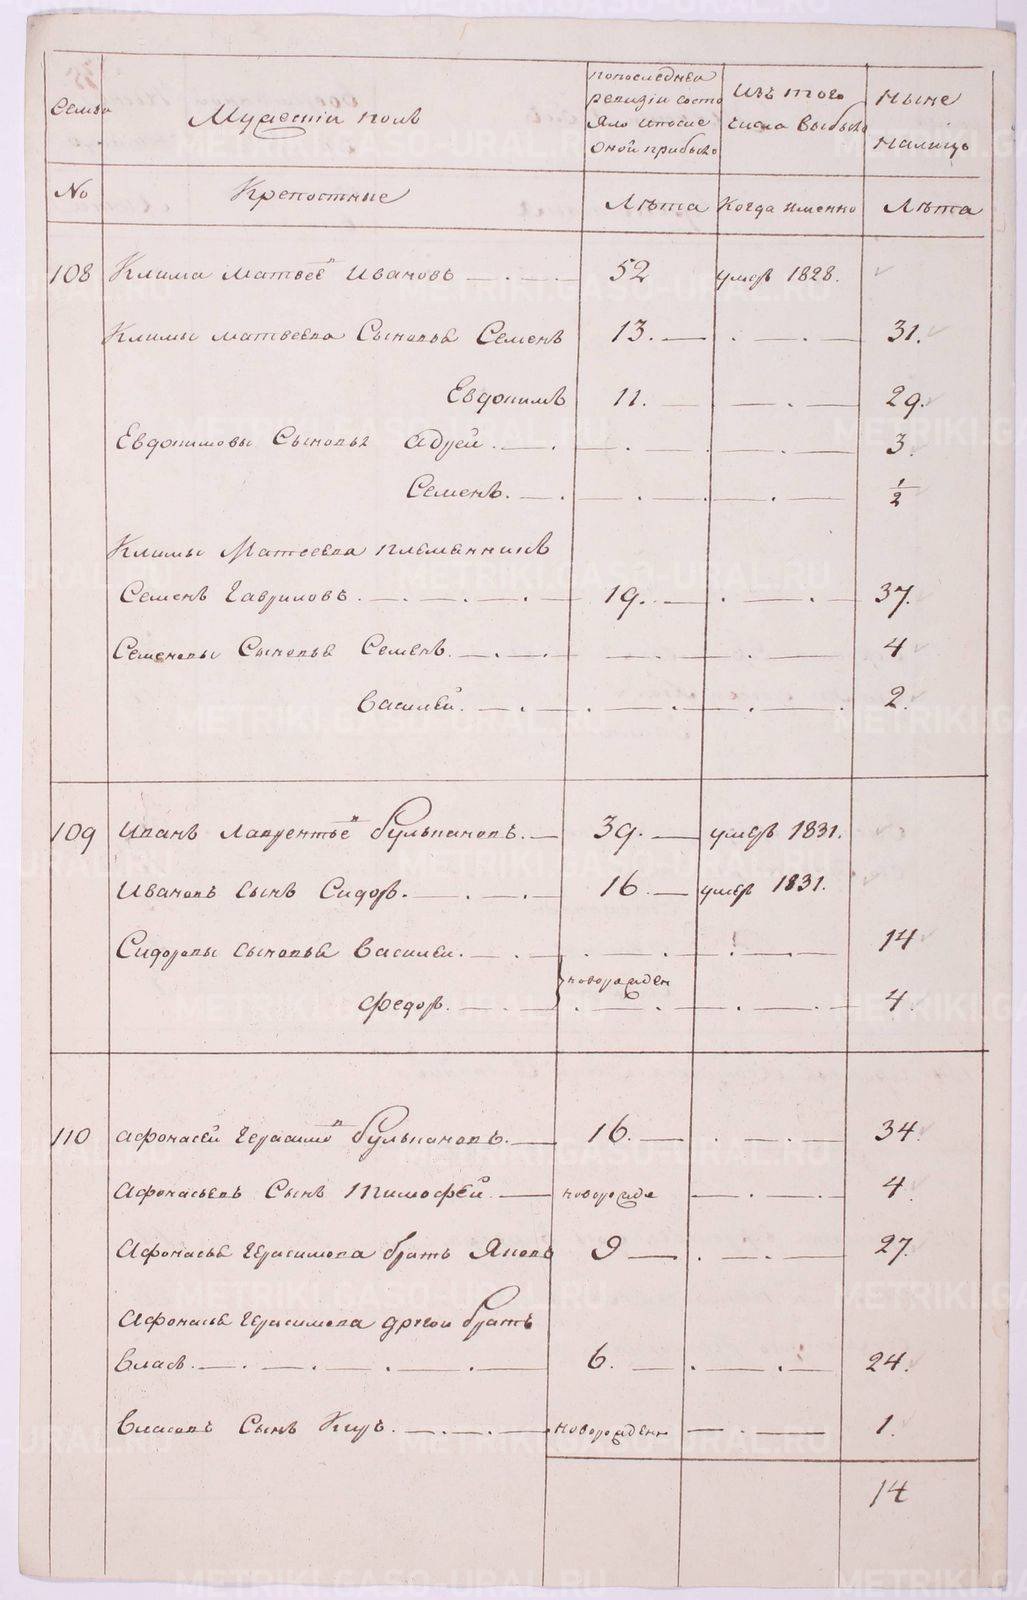 Семьи
Мужескiй полъ
по последней
ревизiи состо
яло и после
оной прибыло
Изъ того
числа выбыло
Ныне
налицо
No
Крепостные
Лѣта
Когда именно
Лѣта
108 Клима Матвеевъ Ивановъ 52 умеръ 1828.
Климы Матвеева Сыновья Семенъ 13. 31.
Евдокимъ 11. 29.
Евдокимовы Сыновья Адрей. 3.
Семенъ. 1/2
Климы Матвеева племянникъ
Семенъ Гавриловъ. 19. 37.
Семеновы Сыновья Семенъ. 4
Василей. 2.
109 Иванъ Лаврентьевъ Булычовъ. 39. умеръ 1831.
Ивановъ сынъ Сидоръ. 16. умеръ 1831.
Сидоровы сыновья Василей. 14
новорожден
Федоръ. 4.
110 Афонасей Герасимовъ 16. 34.
Афонасьевъ Сынъ Тимофей. новорожде 4.
Афонасья Герасимова братъ Яковъ 9 27.
Афонасья Герасимова другой братъ
Власъ. 6. 24.
Власовъ Сынъ Киръ. новорожденн 1.
14
METRIKI.GASO-URAL.RU